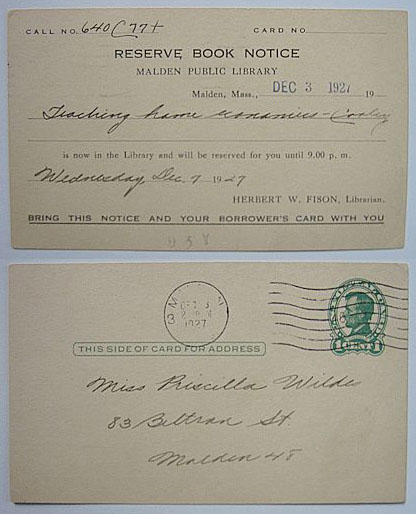 CALL NO. 640 C77t CARD NO.
RESERVE BOOK NOTICE
MALDEN PUBLIC LIBRARY
Malden, Mass., DEC 3 1927 19
Teaching home economics - Cooley
is now in the Library and will be reserved for you until 9.00 p. m.
Wednesday Dec. 7 1927
HERBERT W. FISON, Librarian.
BRING THIS NOTICE AND YOUR BORROWER'S CARD WITH YOU
1927
THIS SIDE OF CARD FOR ADDRESS
Miss Priscilla Wildes
83 Beltran St.
Malden 48